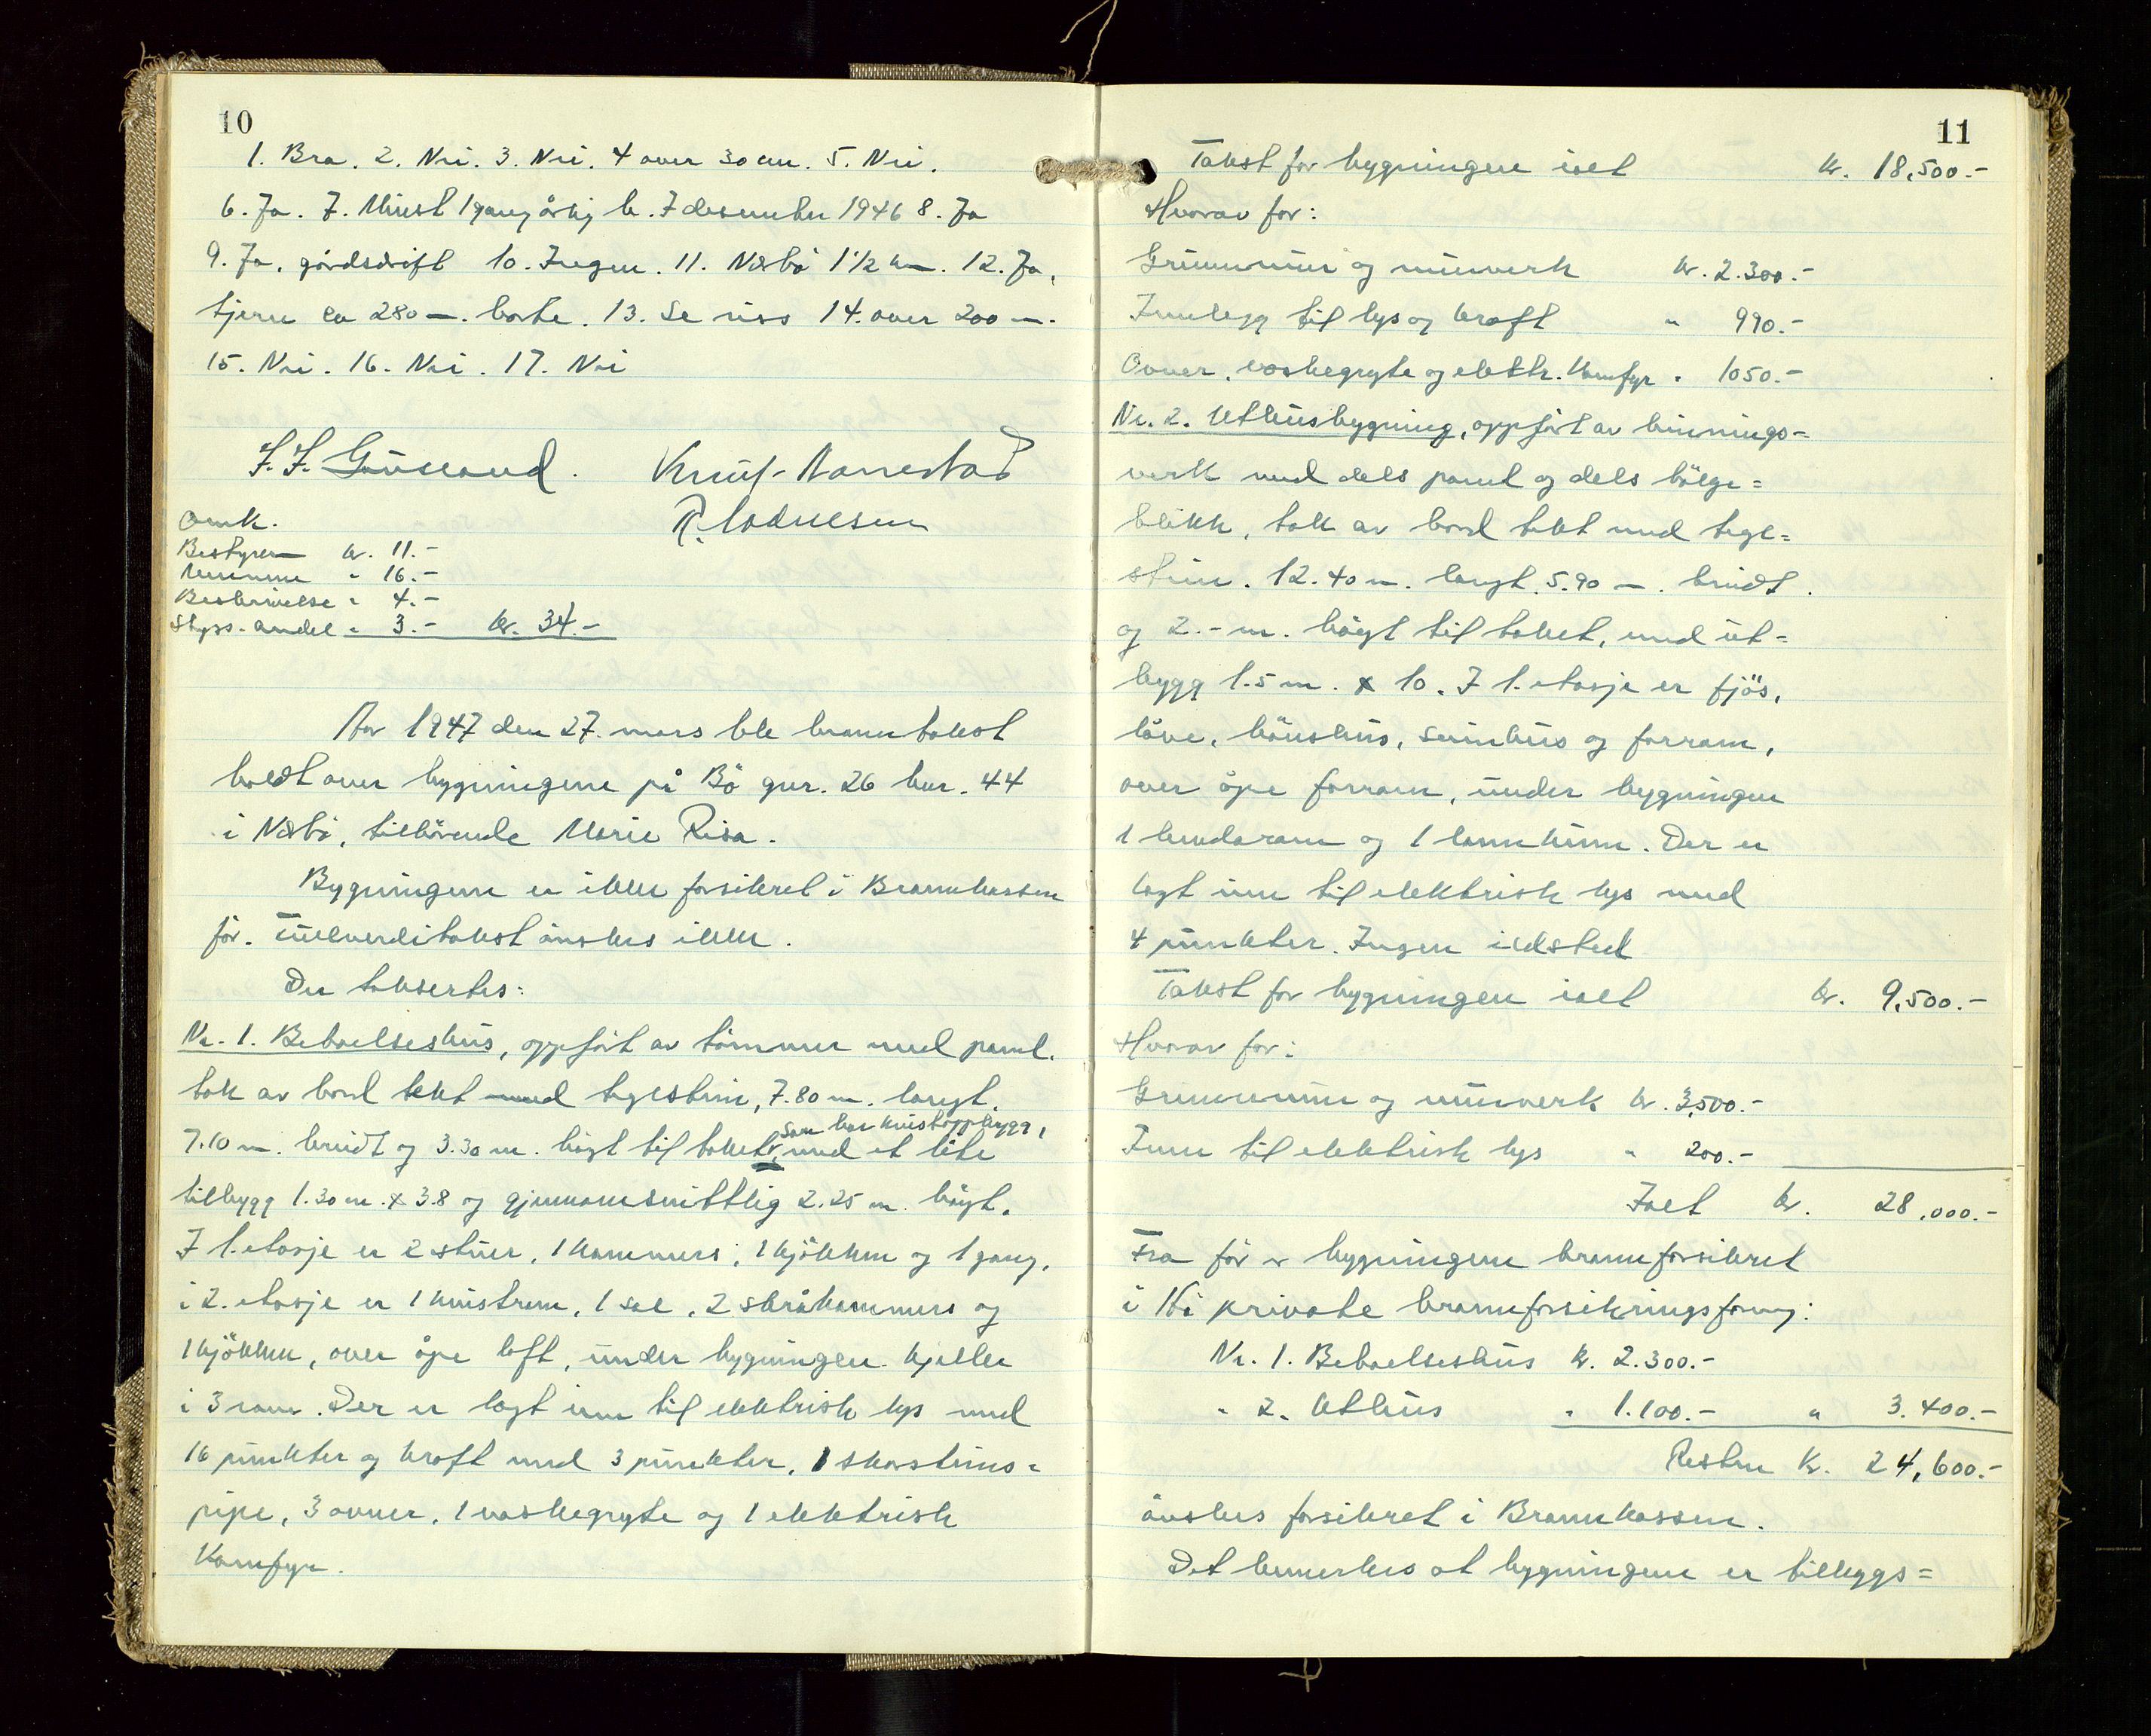 10
1. Bra. 2. Nei. 3. Nei. 4 over 30 cm. 5. Nei.
6. Ja. 7. Minst 1 gang årlig b. 7 desember 1946 8. Ja
9. Ja, gårdsdrift 10. Ingen. 11. Nærbö 1 1/2 km. 12. Ja,
tjern ca 280 m. borte. 13. Se riss 14. over 200 m.
15. Nei. 16. Nei. 17. Nei
Knut Narrestad
Omk.
Bestyreren kr. 11.-
Mennene " 16.-
Beskrivelse " 4.-
Skyss-andel " 3.- kr. 34.-
År 1947 den 27. mars ble branntakst
holdt over bygningene på Bö gnr. 26 bnr. 44
i Nærbö, tilhörende Marie Risa.
Bygningene er ikke forsikret i Brannkassen
för. Fullverditakst önskes ikke.
Der taksertes:
Nr. 1. Beboelseshus, oppfört av tömmer med panel.
tak av bord tekt med teglstein, 7.80 m. langt.
7.10 m. breidt og 3.30 m. högt til taket, som har kvistoppbygg, med et lite
tilbygg 1.30 m. x 3.8 og gjennomsnittlig 2.25 m. högt.
I 1. etasje er 2 stuer, 1 kammers, 1 kjökken og 1 gang,
i 2. etasje er 1 kvistrom, 1 sal, 2 skråkammers og
1 kjökken, over åpe loft, under bygningen kjeller
i 3 rom. Der er lagt inn til elektrisk lys med
16 punkter og kraft med 3 punkter, 1 skorsteins=
pipe, 3 ovner, 1 vaskegryte og 1 elektrisk
Komfyr.
11
Takst for bygningen ialt kr. 18,500.-
Hvorav for:
Grunnmur og murverk kr. 2.300.-
Innlegg til lys og kraft " 990.-
Ovner, vaskegryte og elektr. Komfyr " 1050.-
Nr. 2. Uthusbygning, oppfört av binnings=
verk med dels panel og dels bölge=
blikk, tak av bord tekt med tegl=
stein. 12.40 m. langt. 5.90 m. breidt.
og 2.- m. högt til taket, med ut=
bygg 1.5 m. x 10. I 1. etasje er fjös,
låve, hönshus, svinhus og forrom,
over åpe forrom, under bygningen
1 lendarom og 1 lannkum. Der er
lagt inn til elektrisk lys med
4 punkter. Ingen ildsted
Takst for bygningen ialt kr. 9,500.-
Hvorav for:
Grunnmur og murverk kr. 3,500.-
Inn til elektrisk lys " 200.-
Ialt kr. 28,000.-
Fra för er bygningene brannforsikret
i Hå private brannforsikringsforeng:
Nr. 1. Beboelseshus kr. 2.300.-
" 2. Uthus " 1.100.- " 3.400.-
Resten kr. 24,600.-
önskes forsikret i Brannkassen.
Det bemerkes at bygningene er tilleggs=